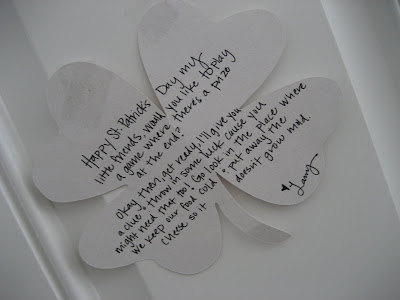 Happy St. Patrick's Day my
little friends, would you like to play
a game where there's a prize
at the end?
Okay, then, get ready, I'll give you
a clue & throw in some luck cause you
might need that too! Go look in the place where
we keep our food cold & put away the
cheese so it doesn't grow mold.
♥ Larry